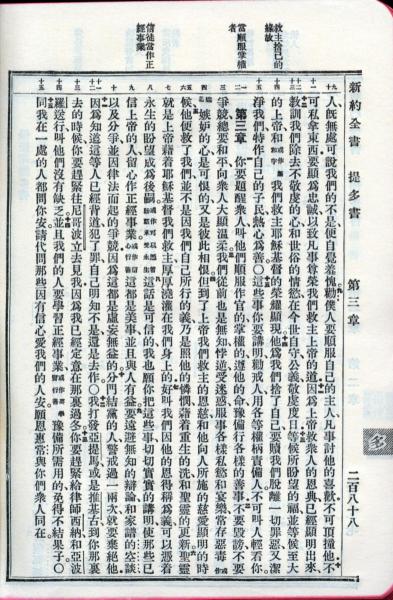 新約全書 提多書 第三章 二百八十八
多
教主捨己的緣故
當順服掌權者
信徒當作正經事業
人旣無處可說我們的不是便自覺羞愧勸僕人要順服自己的主人凡事討他的喜歡不可頂撞他不
可私拿東西要顯為忠誠以致凡事尊榮我們救主上帝的道因為上帝救衆人的恩典已經顯明出來
教訓我們除去不敬虔的心和世俗的情慾在今世自守公義敬虔度日等候所盼望的福並等候至大
的上帝和 我們救主耶穌基督的榮耀顯現他為我們捨了自己要贖我們脫離一切罪惡又潔
淨我們特作自己的子民熱心為善○這些事你要講明勸戒人用各等權柄責備人不可叫人輕看你
第三章 你要題醒衆人叫他們順服作官的掌權的遵他的命豫備行各樣的善事不要毀謗不要
爭競總要和平向衆人大顯溫柔我們從前也是無知悖逆受迷惑服事各樣私慾和宴樂常存惡毒
嫉妒的心是可恨的又是彼此相恨但到了上帝我們救主的恩慈和他向人所施的慈愛顯明的時
候他便救了我們並不是因我們自己所行的義乃是照他的憐憫藉着重生的洗和聖靈的更新聖靈
就是上帝藉着耶穌基督我們救主厚厚澆灌在我們身上的好叫我們因他的恩得稱為義可以憑着
永生的盼望成為後嗣 這話是可信的我也願你把這些事切切實實的講明使那些已
信上帝的人留心作正經事業 這都是美事並且與人有益要遠避無知的辯論和家譜的空談
以及分爭並因律法而起的爭競因為這都是虛妄無益的分門結黨的人警戒過一兩次就要棄絕他
因為知道這等人已經背道犯了罪自己明知不是還是去作○我打發亞提馬或是推基古到你那裏
去的時候你要趕緊往尼哥波立去見我因為我已經定意在那裏過冬你要趕緊給律師西納和亞波
羅送行叫他們沒有缺乏並且我們的人要學習正經事業 豫備所需用的免得不結果子○
同我在一處的人都問你安請代問那些因有信心愛我們的人安願恩惠常與你們衆人同在